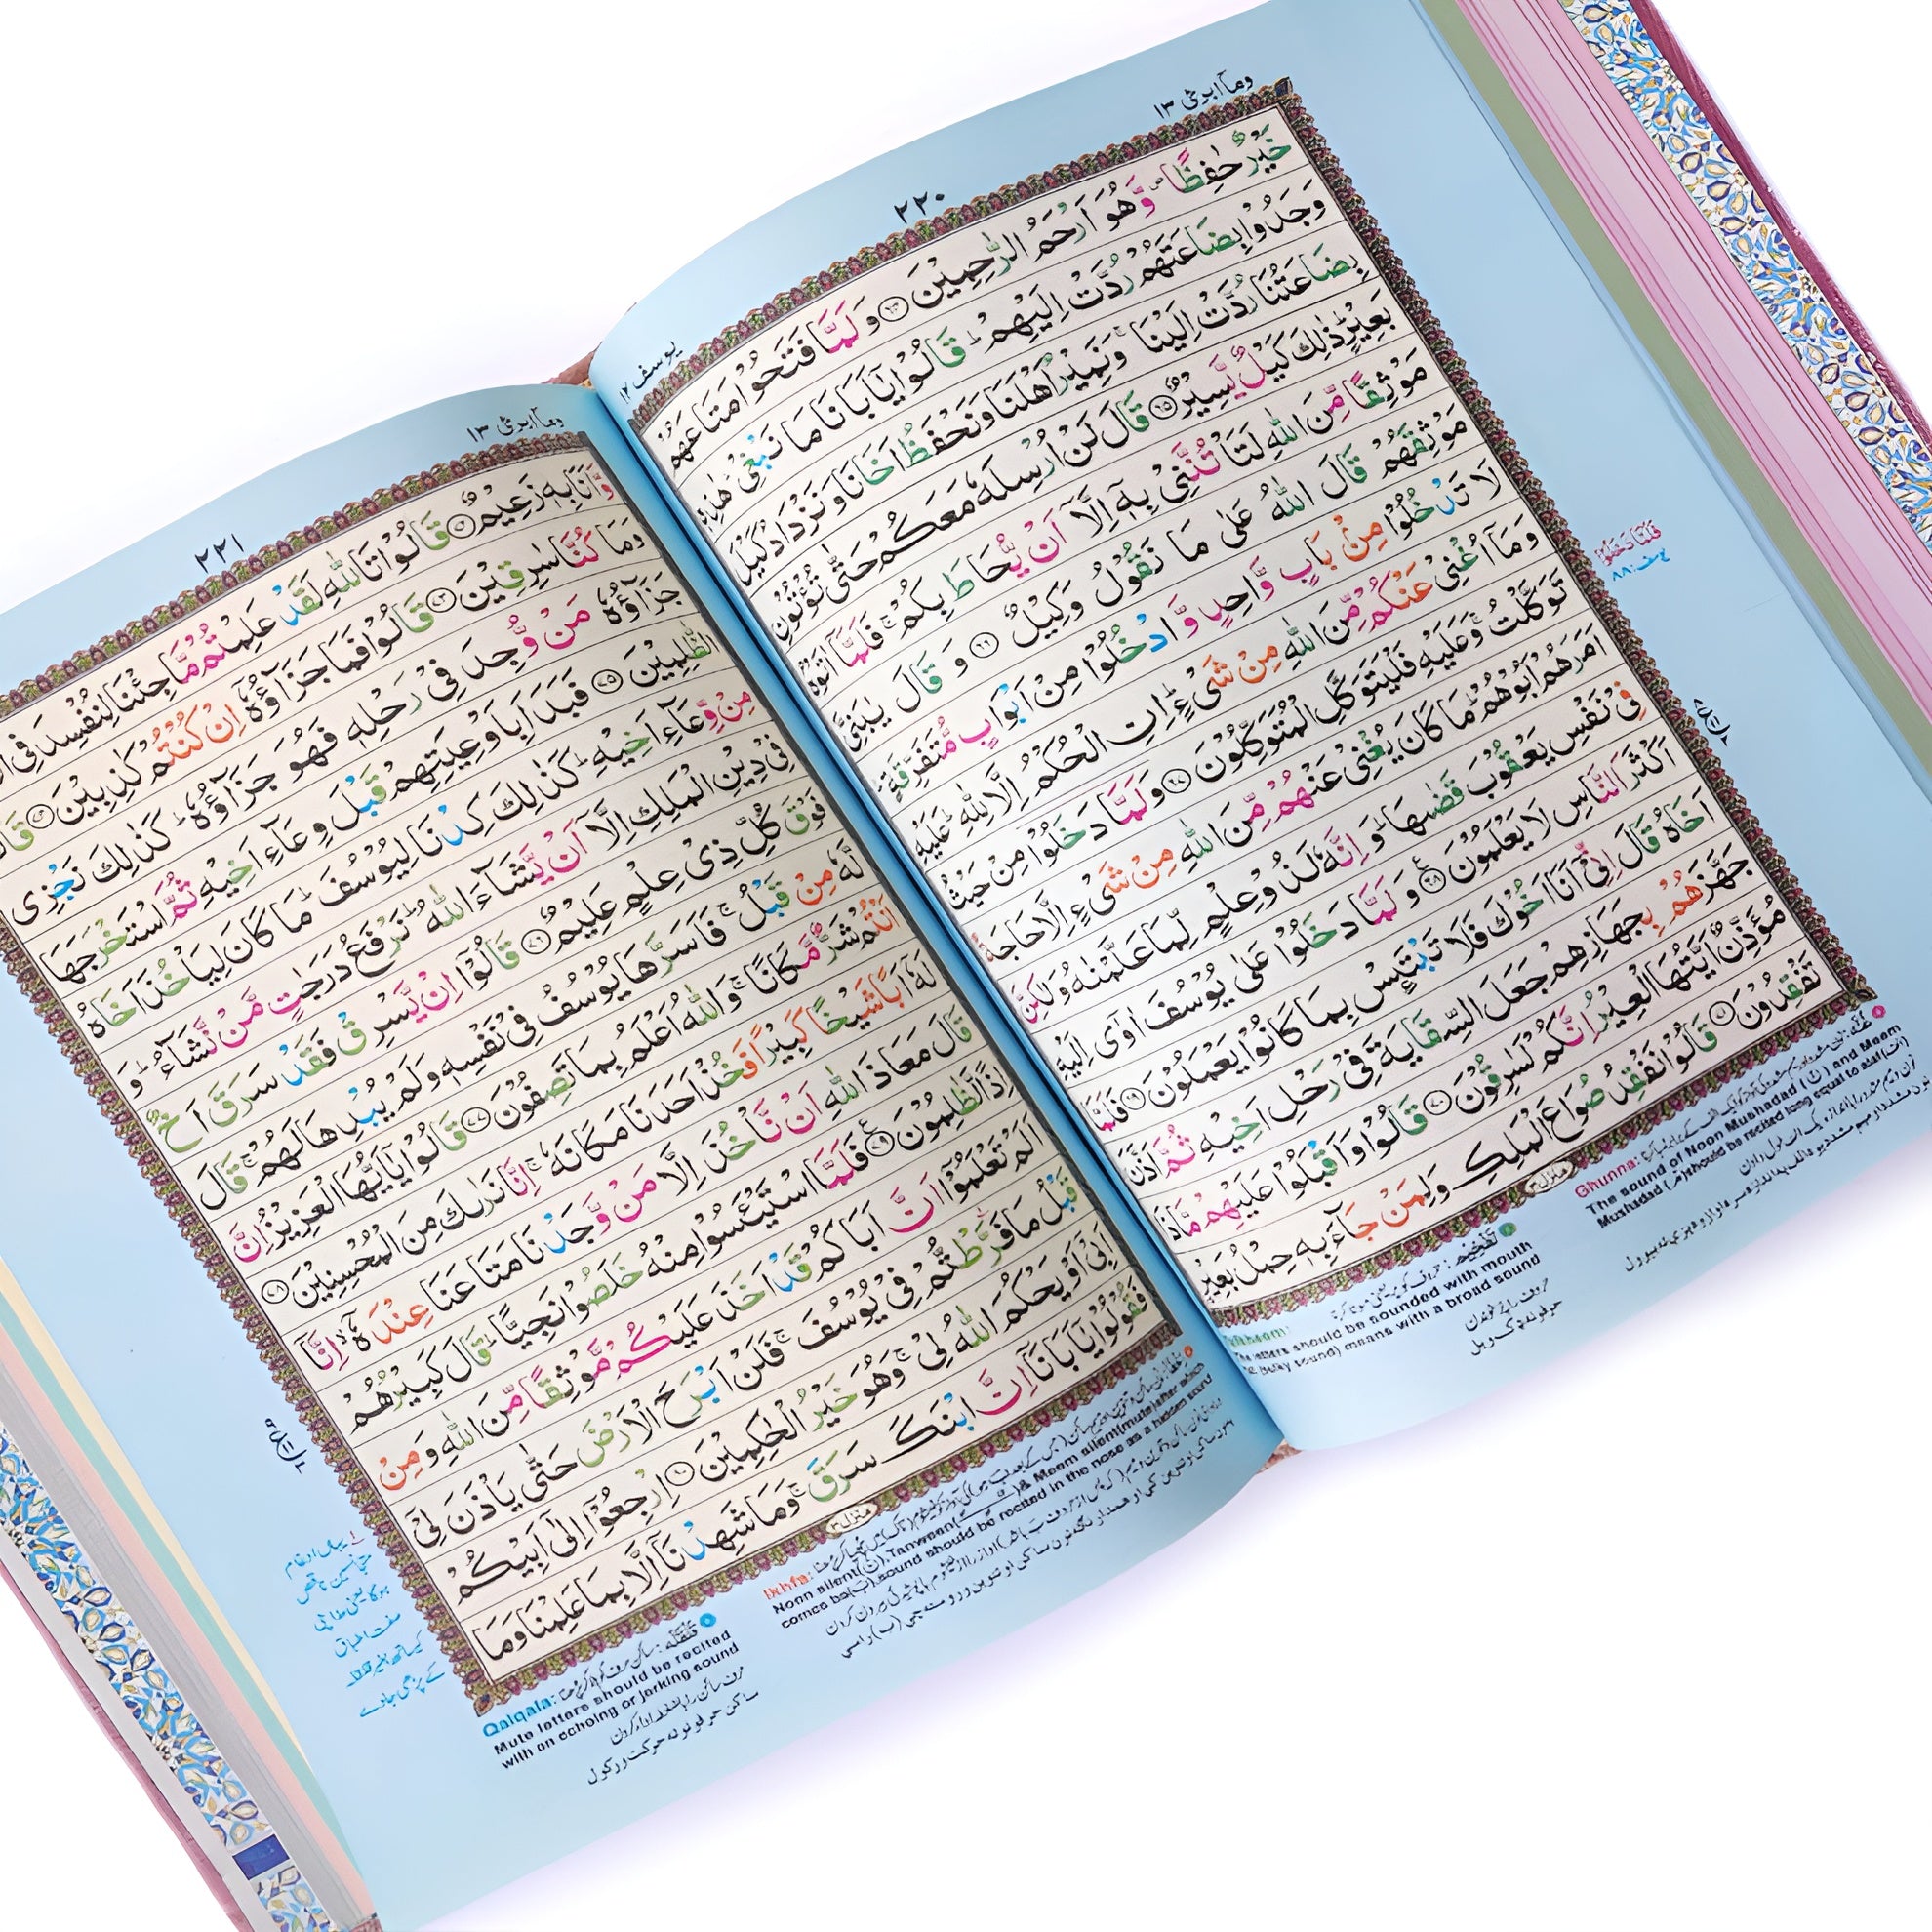 وماۤ ابرئ ١٣
٢٢٠
يوسف ١٢
خَيْرٌ حٰفِظًا ۪ وَّهُوَ اَرْحَمُ الرّٰحِمِيْنَ ۶۴ وَلَمَّا فَتَحُوْا مَتَاعَهُمْ
وَجَدُوْا بِضَاعَتَهُمْ رُدَّتْ اِلَيْهِمْ ؕ قَالُوْا يٰۤاَبَانَا مَا نَبْغِيْ ؕ هٰذِهٖ
بِضَاعَتُنَا رُدَّتْ اِلَيْنَا ۚ وَنَمِيْرُ اَهْلَنَا وَنَحْفَظُ اَخَانَا وَنَزْدَادُ كَيْلَ
بَعِيْرٍ ؕ ذٰلِكَ كَيْلٌ يَّسِيْرٌ ۶۵ قَالَ لَنْ اُرْسِلَهٗ مَعَكُمْ حَتّٰى تُؤْتُوْنِ
مَوْثِقًا مِّنَ اللّٰهِ لَتَاْتُنَّنِيْ بِهٖۤ اِلَّاۤ اَنْ يُّحَاطَ بِكُمْ ۚ فَلَمَّاۤ اٰتَوْهُ
مَوْثِقَهُمْ قَالَ اللّٰهُ عَلٰى مَا نَقُوْلُ وَكِيْلٌ ۶۶ وَ قَالَ يٰبَنِيَّ
لَا تَدْخُلُوْا مِنْۢ بَابٍ وَّاحِدٍ وَّادْخُلُوْا مِنْ اَبْوَابٍ مُّتَفَرِّقَةٍ ؕ
وَمَاۤ اُغْنِيْ عَنْكُمْ مِّنَ اللّٰهِ مِنْ شَيْءٍ ؕ اِنِ الْحُكْمُ اِلَّا لِلّٰهِ ؕ عَلَيْهِ
تَوَكَّلْتُ ۚ وَعَلَيْهِ فَلْيَتَوَكَّلِ الْمُتَوَكِّلُوْنَ ۶۷ وَلَمَّا دَخَلُوْا مِنْ حَيْثُ
اَمَرَهُمْ اَبُوْهُمْ ؕ مَا كَانَ يُغْنِيْ عَنْهُمْ مِّنَ اللّٰهِ مِنْ شَيْءٍ اِلَّا حَاجَةً
فِيْ نَفْسِ يَعْقُوْبَ قَضٰىهَا ؕ وَاِنَّهٗ لَذُوْ عِلْمٍ لِّمَا عَلَّمْنٰهُ وَلٰكِنَّ
اَكْثَرَ النَّاسِ لَا يَعْلَمُوْنَ ۶۸ وَلَمَّا دَخَلُوْا عَلٰى يُوْسُفَ اٰوٰۤى اِلَيْهِ
اَخَاهُ قَالَ اِنِّيْۤ اَنَا اَخُوْكَ فَلَا تَبْتَئِسْ بِمَا كَانُوْا يَعْمَلُوْنَ ۶۹ فَلَمَّا
جَهَّزَهُمْ بِجَهَازِهِمْ جَعَلَ السِّقَايَةَ فِيْ رَحْلِ اَخِيْهِ ثُمَّ اَذَّنَ
مُؤَذِّنٌ اَيَّتُهَا الْعِيْرُ اِنَّكُمْ لَسٰرِقُوْنَ ۷۰ قَالُوْا وَاَقْبَلُوْا عَلَيْهِمْ مَّاذَا
تَفْقِدُوْنَ ۷۱ قَالُوْا نَفْقِدُ صُوَاعَ الْمَلِكِ وَلِمَنْ جَآءَ بِهٖ حِمْلُ بَعِيْرٍ
Ghunna:
The sound of Noon Mushadad (نّ) and Meem
Mushdad (مّ) should be recited long equal to alaf
تَفْخِيْم
letters should be sounded with mouth
sound) means with a broad sound
وماۤ ابرئ ١٣
٢٢١
وَّاَنَا بِهٖ زَعِيْمٌ ۷۲ قَالُوْا تَاللّٰهِ لَقَدْ عَلِمْتُمْ مَّا جِئْنَا لِنُفْسِدَ فِي
وَمَا كُنَّا سٰرِقِيْنَ ۷۳ قَالُوْا فَمَا جَزَآؤُهٗۤ اِنْ كُنْتُمْ كٰذِبِيْنَ ۷۴
جَزَآؤُهٗ مَنْ وُّجِدَ فِيْ رَحْلِهٖ فَهُوَ جَزَآؤُهٗ ؕ كَذٰلِكَ نَجْزِي
الظّٰلِمِيْنَ ۷۵ فَبَدَاَ بِاَوْعِيَتِهِمْ قَبْلَ وِعَآءِ اَخِيْهِ ثُمَّ اسْتَخْرَجَهَا
مِنْ وِّعَآءِ اَخِيْهِ ؕ كَذٰلِكَ كِدْنَا لِيُوْسُفَ ؕ مَا كَانَ لِيَاْخُذَ اَخَاهُ
فِيْ دِيْنِ الْمَلِكِ اِلَّاۤ اَنْ يَّشَآءَ اللّٰهُ ؕ نَرْفَعُ دَرَجٰتٍ مَّنْ نَّشَآءُ ؕ وَ
فَوْقَ كُلِّ ذِيْ عِلْمٍ عَلِيْمٌ ۷۶ قَالُوْۤا اِنْ يَّسْرِقْ فَقَدْ سَرَقَ اَخٌ
لَّهٗ مِنْ قَبْلُ ۚ فَاَسَرَّهَا يُوْسُفُ فِيْ نَفْسِهٖ وَلَمْ يُبْدِهَا لَهُمْ ۚ قَالَ
اَنْتُمْ شَرٌّ مَّكَانًا ۚ وَاللّٰهُ اَعْلَمُ بِمَا تَصِفُوْنَ ۷۷ قَالُوْا يٰۤاَيُّهَا الْعَزِيْزُ اِنَّ
لَهٗۤ اَبًا شَيْخًا كَبِيْرًا فَخُذْ اَحَدَنَا مَكَانَهٗ ۚ اِنَّا نَرٰىكَ مِنَ الْمُحْسِنِيْنَ ۷۸
قَالَ مَعَاذَ اللّٰهِ اَنْ نَّاْخُذَ اِلَّا مَنْ وَّجَدْنَا مَتَاعَنَا عِنْدَهٗۤ ۙ اِنَّاۤ
اِذًا لَّظٰلِمُوْنَ ۷۹ فَلَمَّا اسْتَيْـَٔسُوْا مِنْهُ خَلَصُوْا نَجِيًّا ؕ قَالَ كَبِيْرُهُمْ
اَلَمْ تَعْلَمُوْۤا اَنَّ اَبَاكُمْ قَدْ اَخَذَ عَلَيْكُمْ مَّوْثِقًا مِّنَ اللّٰهِ وَمِنْ
قَبْلُ مَا فَرَّطْتُّمْ فِيْ يُوْسُفَ ۚ فَلَنْ اَبْرَحَ الْاَرْضَ حَتّٰى يَاْذَنَ لِيْۤ
اَبِيْۤ اَوْ يَحْكُمَ اللّٰهُ لِيْ ۚ وَهُوَ خَيْرُ الْحٰكِمِيْنَ ۸۰ اِرْجِعُوْۤا اِلٰۤى اَبِيْكُمْ
فَقُوْلُوْا يٰۤاَبَانَاۤ اِنَّ ابْنَكَ سَرَقَ ۚ وَمَا شَهِدْنَاۤ اِلَّا بِمَا عَلِمْنَا وَمَا
Ikhfa:
Noon silent(نْ), Tanween & Meem silent(mute)after which
comes baa(ب)sound should be recited in the nose as a hidden sound
Qalqala: قَلْقَلَه
Mute letters should be recited
with an echoing or jerking sound